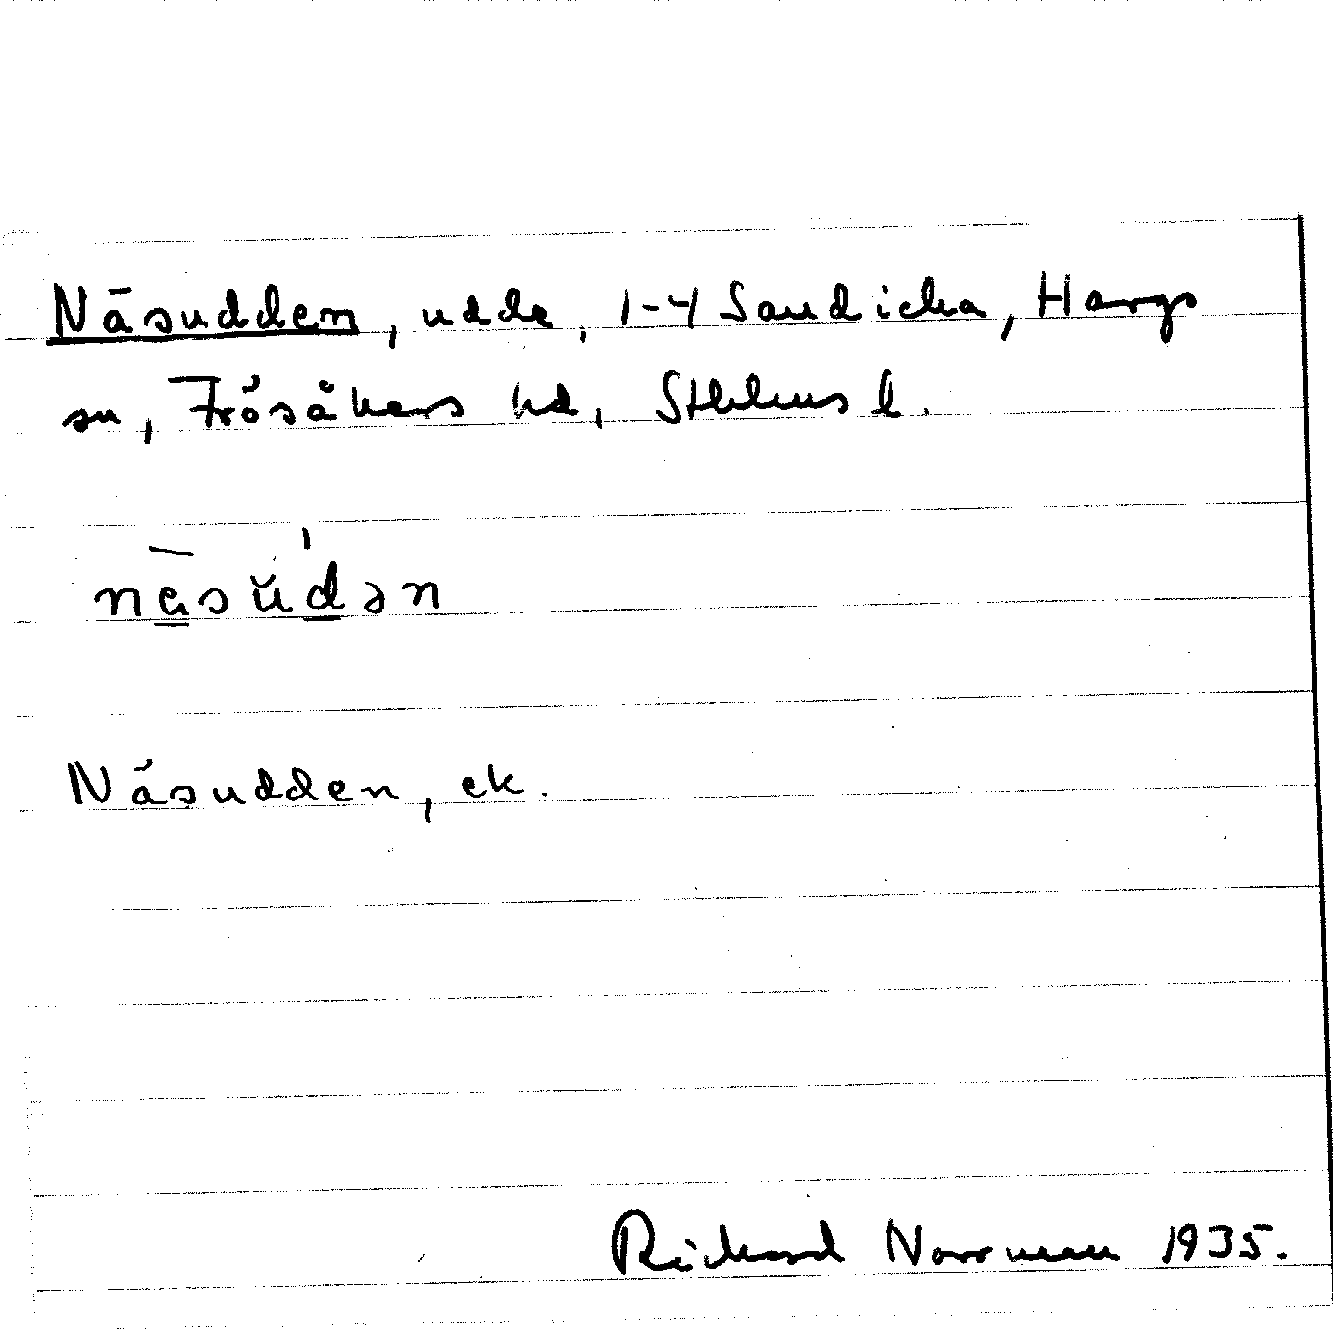 Näsudden, udde, 1-4 Sandicka, Hargs
sn, Frösåkers hd, Sthlms l.
näsŭdən
Näsudden, ek.
Richard Norrman 1935.